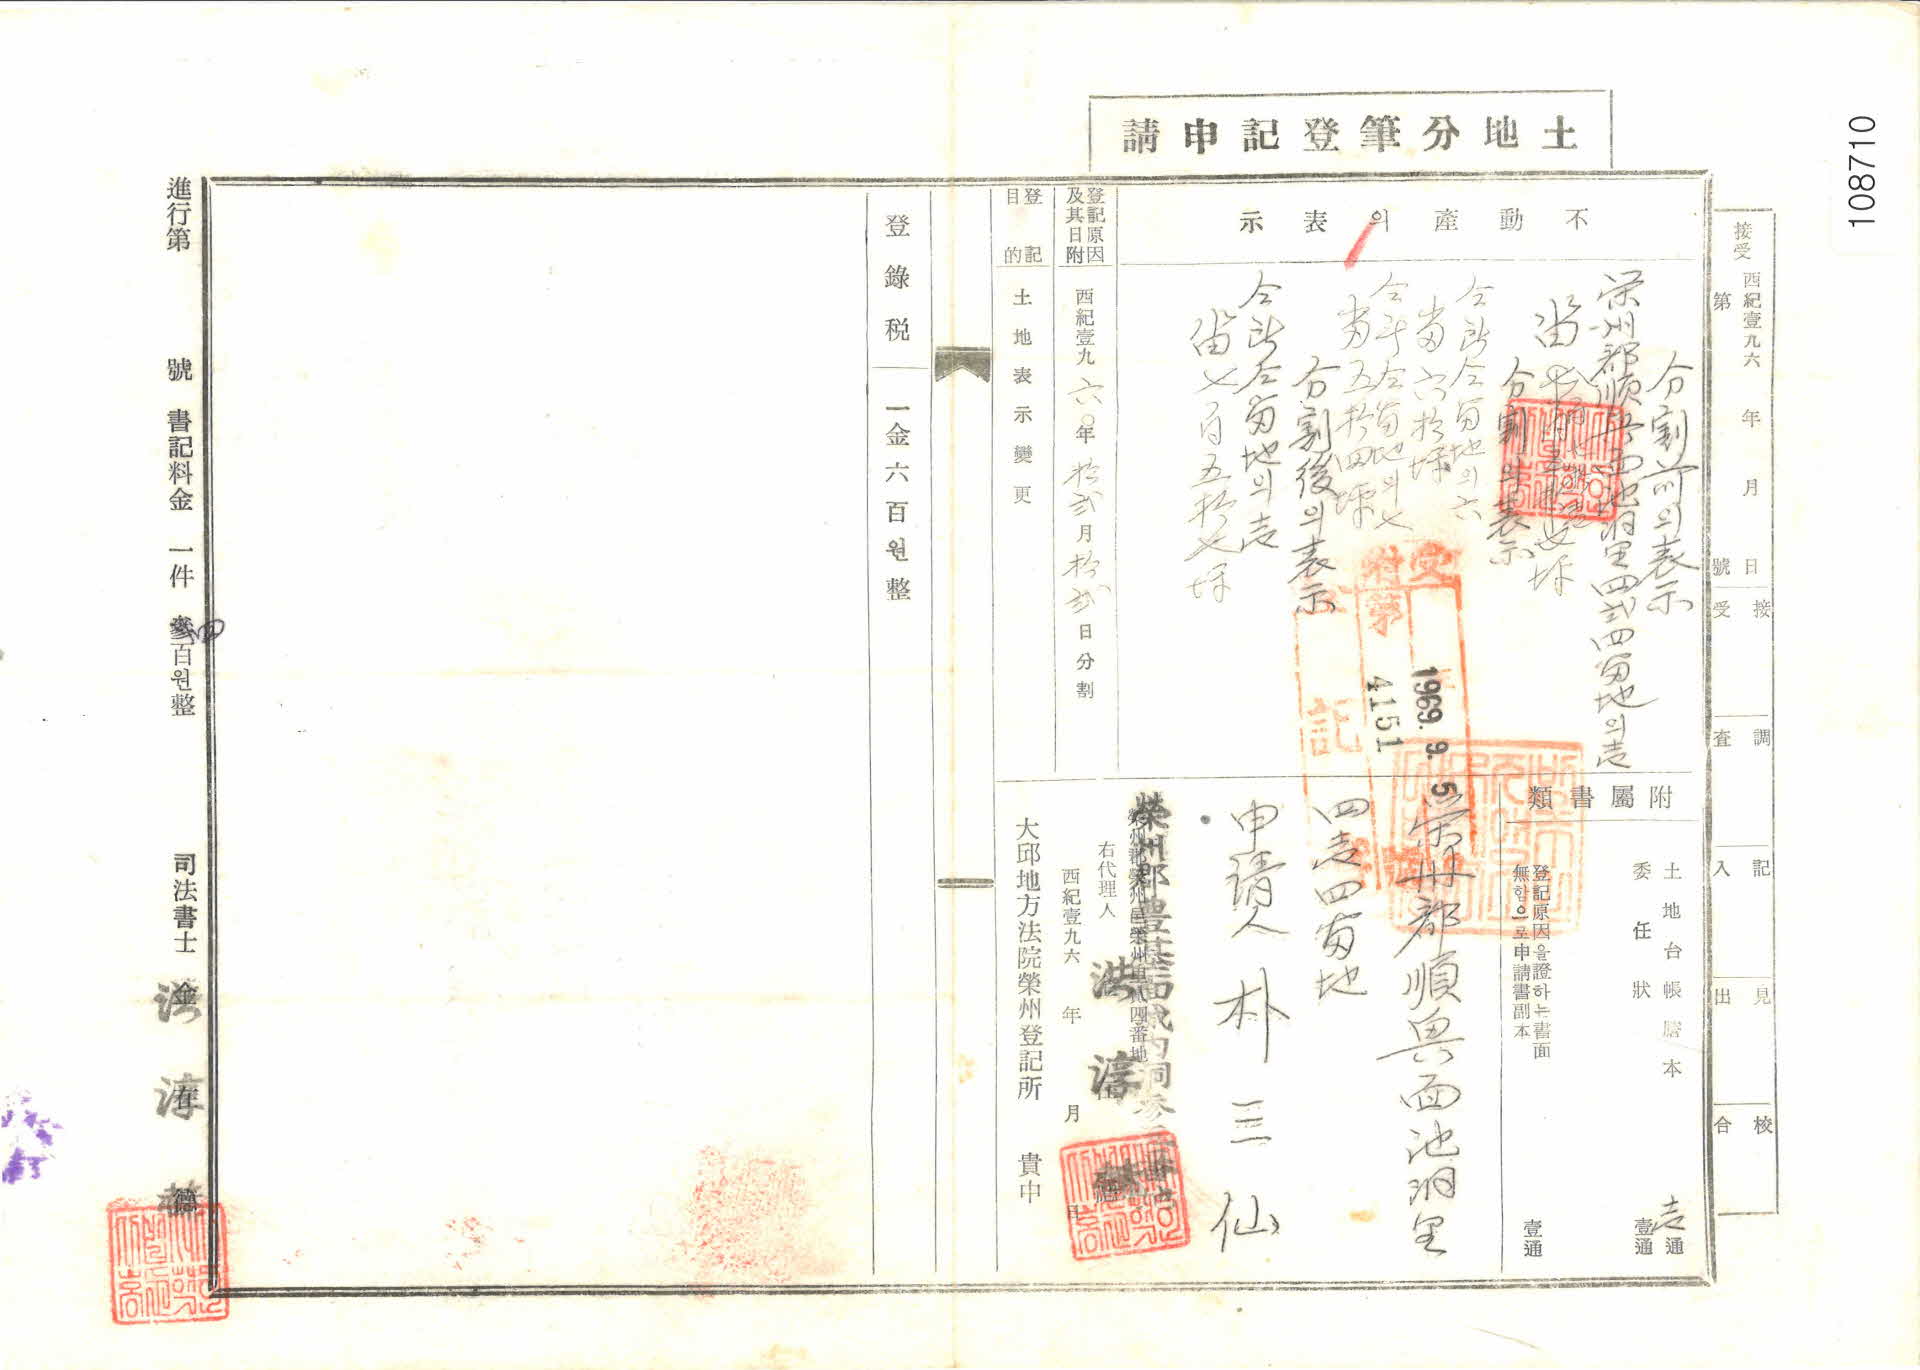 108710
土地分筆登記申請
接受 西紀壹九六 年 月 日
第 號
接受
調査
記入
見出
校合
不動產의表示
分割前의表示
栄州郡順興面池洞里四弐四番地의壱
分割의表示
仝所仝番地의六
畓六拾坪
仝所仝番地의七
畓五拾四坪
分割後의表示
仝所仝番地의壱
畓七百五拾七坪
登記原因及其日附
西紀壹九六〇年拾弐月拾弐日分割
登記目的
土地表示變更
受附
1969. 9. 5
第 4151
登記
附屬書類
土地台帳謄本 壱通
委任狀 壹通
登記原因을證하는書面
無함으로申請書副本 壹通
栄州郡順興面池洞里
四壱四番地
申請人 朴三仙
榮州郡豊基面城内洞
右代理人
洪淳
西紀壹九六 年 月 日
大邱地方法院榮州登記所 貴中
登錄税
一金六百원整
進行第 號 書記料金 一件 四百원整 司法書士
洪淳